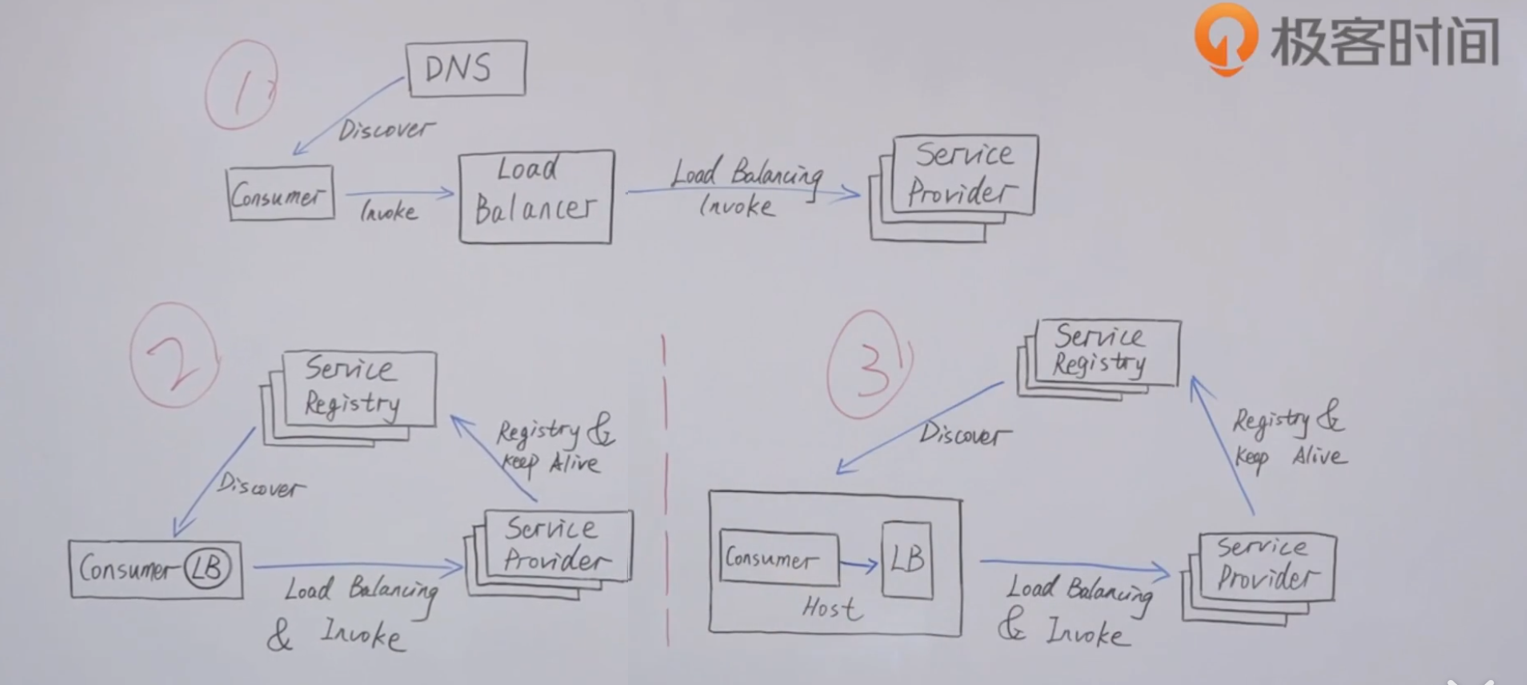 极客时间
1
DNS
Discover
Consumer
Invoke
Load
Balancer
Load Balancing
Invoke
Service
Provider
2
Service
Registry
Discover
Registry &
Keep Alive
Consumer LB
Load Balancing
& Invoke
Service
Provider
3
Service
Registry
Discover
Registry &
Keep Alive
Consumer
LB
Host
Load Balancing
& Invoke
Service
Provider